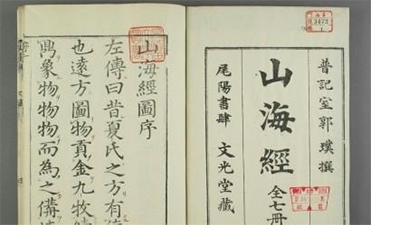 晋記室郭璞撰
山海經 全七冊
尾陽書肆 文光堂藏
3473
山海經圖序
左傳曰昔夏氏之方有
也遠方圖物貢金九牧
象物物物而為之備